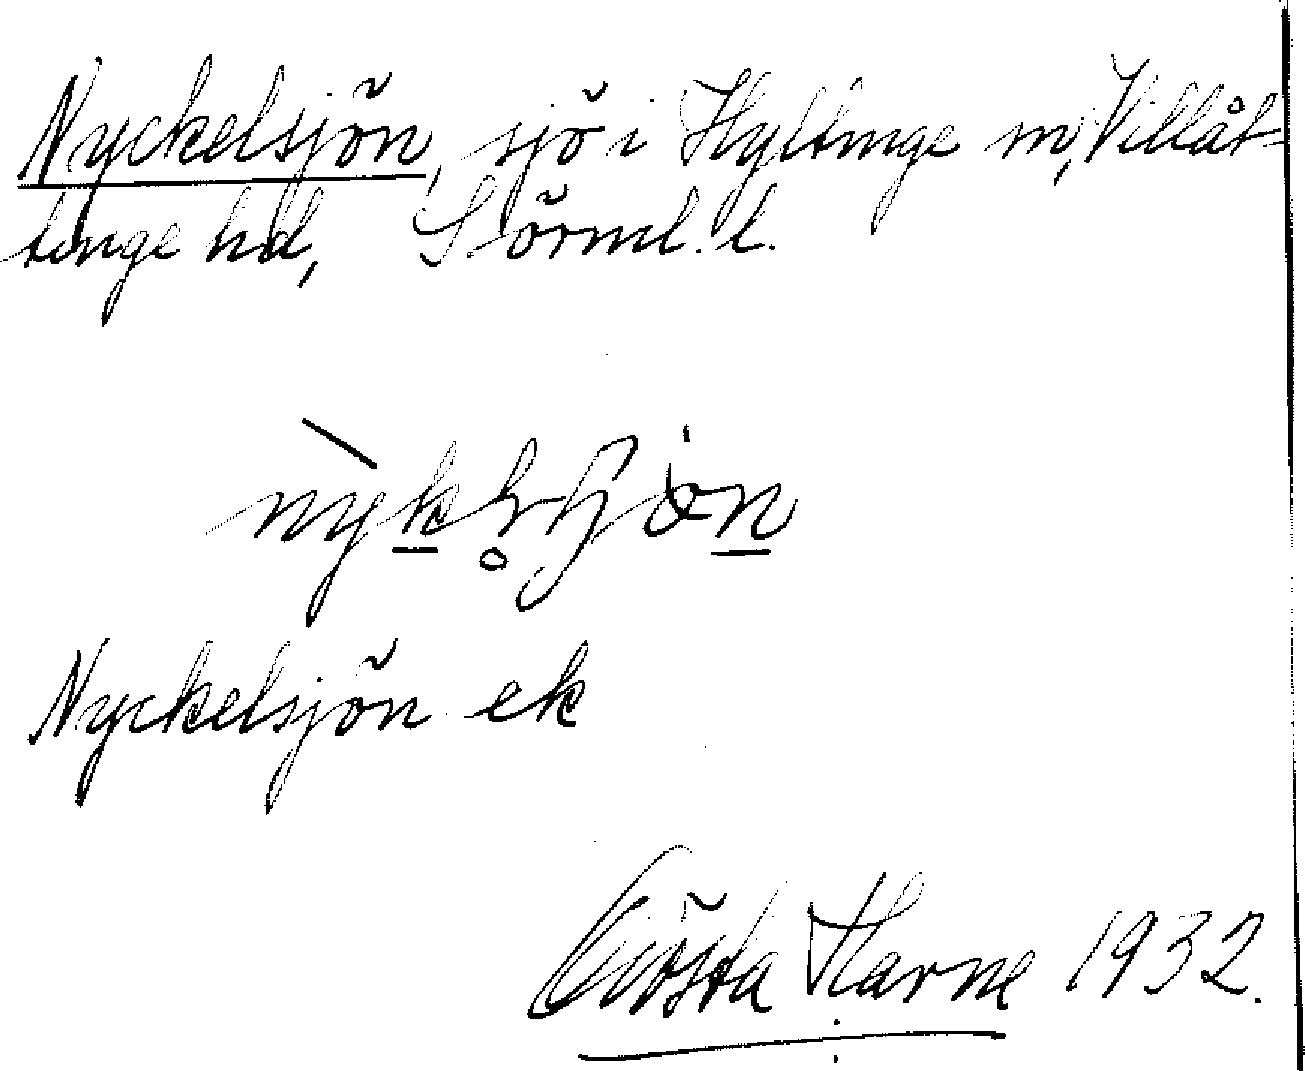 Nyckelsjön, sjö i Hyltinge sn, Villåt-
tinge hd, Sörml. l.
Nyckelsjön ek
Gösta Harne 1932.